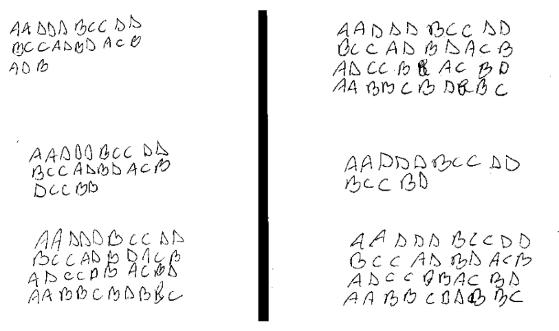 AADDDBCCDD
BCCADBDACB
ADB
AADDDBCCDD
BCCADBDACB
DCCBD
AADDDBCCDD
BCCADBDACB
ADCCDBACBD
AABBCBDBBC
AADDDBCCDD
BCCADBDACB
ADCCBBACBD
AABBCBDBBC
AADDDBCCDD
BCCBD
AADDDBCCDD
BCCADBDACB
ADCCBBACBD
AABBCBDBBC